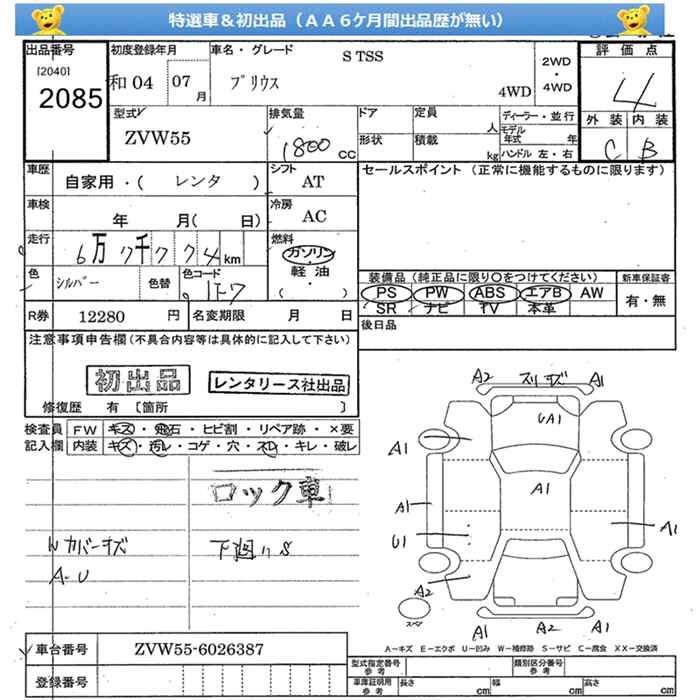 特選車＆初出品（ＡＡ６ケ月間出品歴が無い）
出品番号
[2040]
2085
初度登録年月
和04 07月
車名・グレード
S TSS
プリウス
4WD
2WD
・
4WD
評価点
4
外装 内装
C B
型式
ZVW55
排気量
1800 CC
ドア
定員 人
ディーラー・並行
モデル年式 年
形状
積載 kg
ハンドル 左・右
車歴
自家用・( レンタ )
シフト
AT
セールスポイント（正常に機能するものに限ります）
車検
年 月( 日)
冷房
AC
走行
6万7千774km
燃料
ガソリン
軽油
( )
色
シルバー
色替
色コード
1F7
装備品（純正品に限り○をつけてください）
PS PW ABS エアB AW
SR ナビ TV 本革
新車保証書
有・無
R券 12280 円
名変期限 月 日
後日品
注意事項申告欄（不具合内容等は具体的に記入して下さい）
初出品
レンタリース社出品
修復歴 有 [箇所 ]
検査員
記入欄
FW キズ・飛石・ヒビ割・リペア跡・×要
内装 キズ・汚レ・コゲ・穴・スレ・キレ・破レ
ロック車
Wカバーキズ
A-U
下廻りS
A2 スリキズ A1
UA1
A1
A1
A1
A1
U1
A2
スペア
A1 A2 A1
A-キズ E-エクボ U-凹み W-補修跡 S-サビ C-腐食 XX-交換済
車台番号 ZVW55-6026387
登録番号
型式指定番号
参考
類別区分番号
参考
車庫証明用
参考
長さ cm
幅 cm
高さ cm